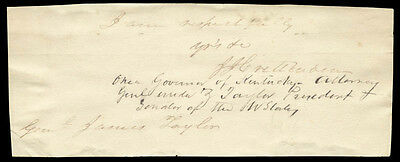 I am respectfully
yr's &c
J J Crittenden
Once Governor of Kentucky Attorney
Genl under Z Taylor President &
Senator of the U States
Genl. James Taylor